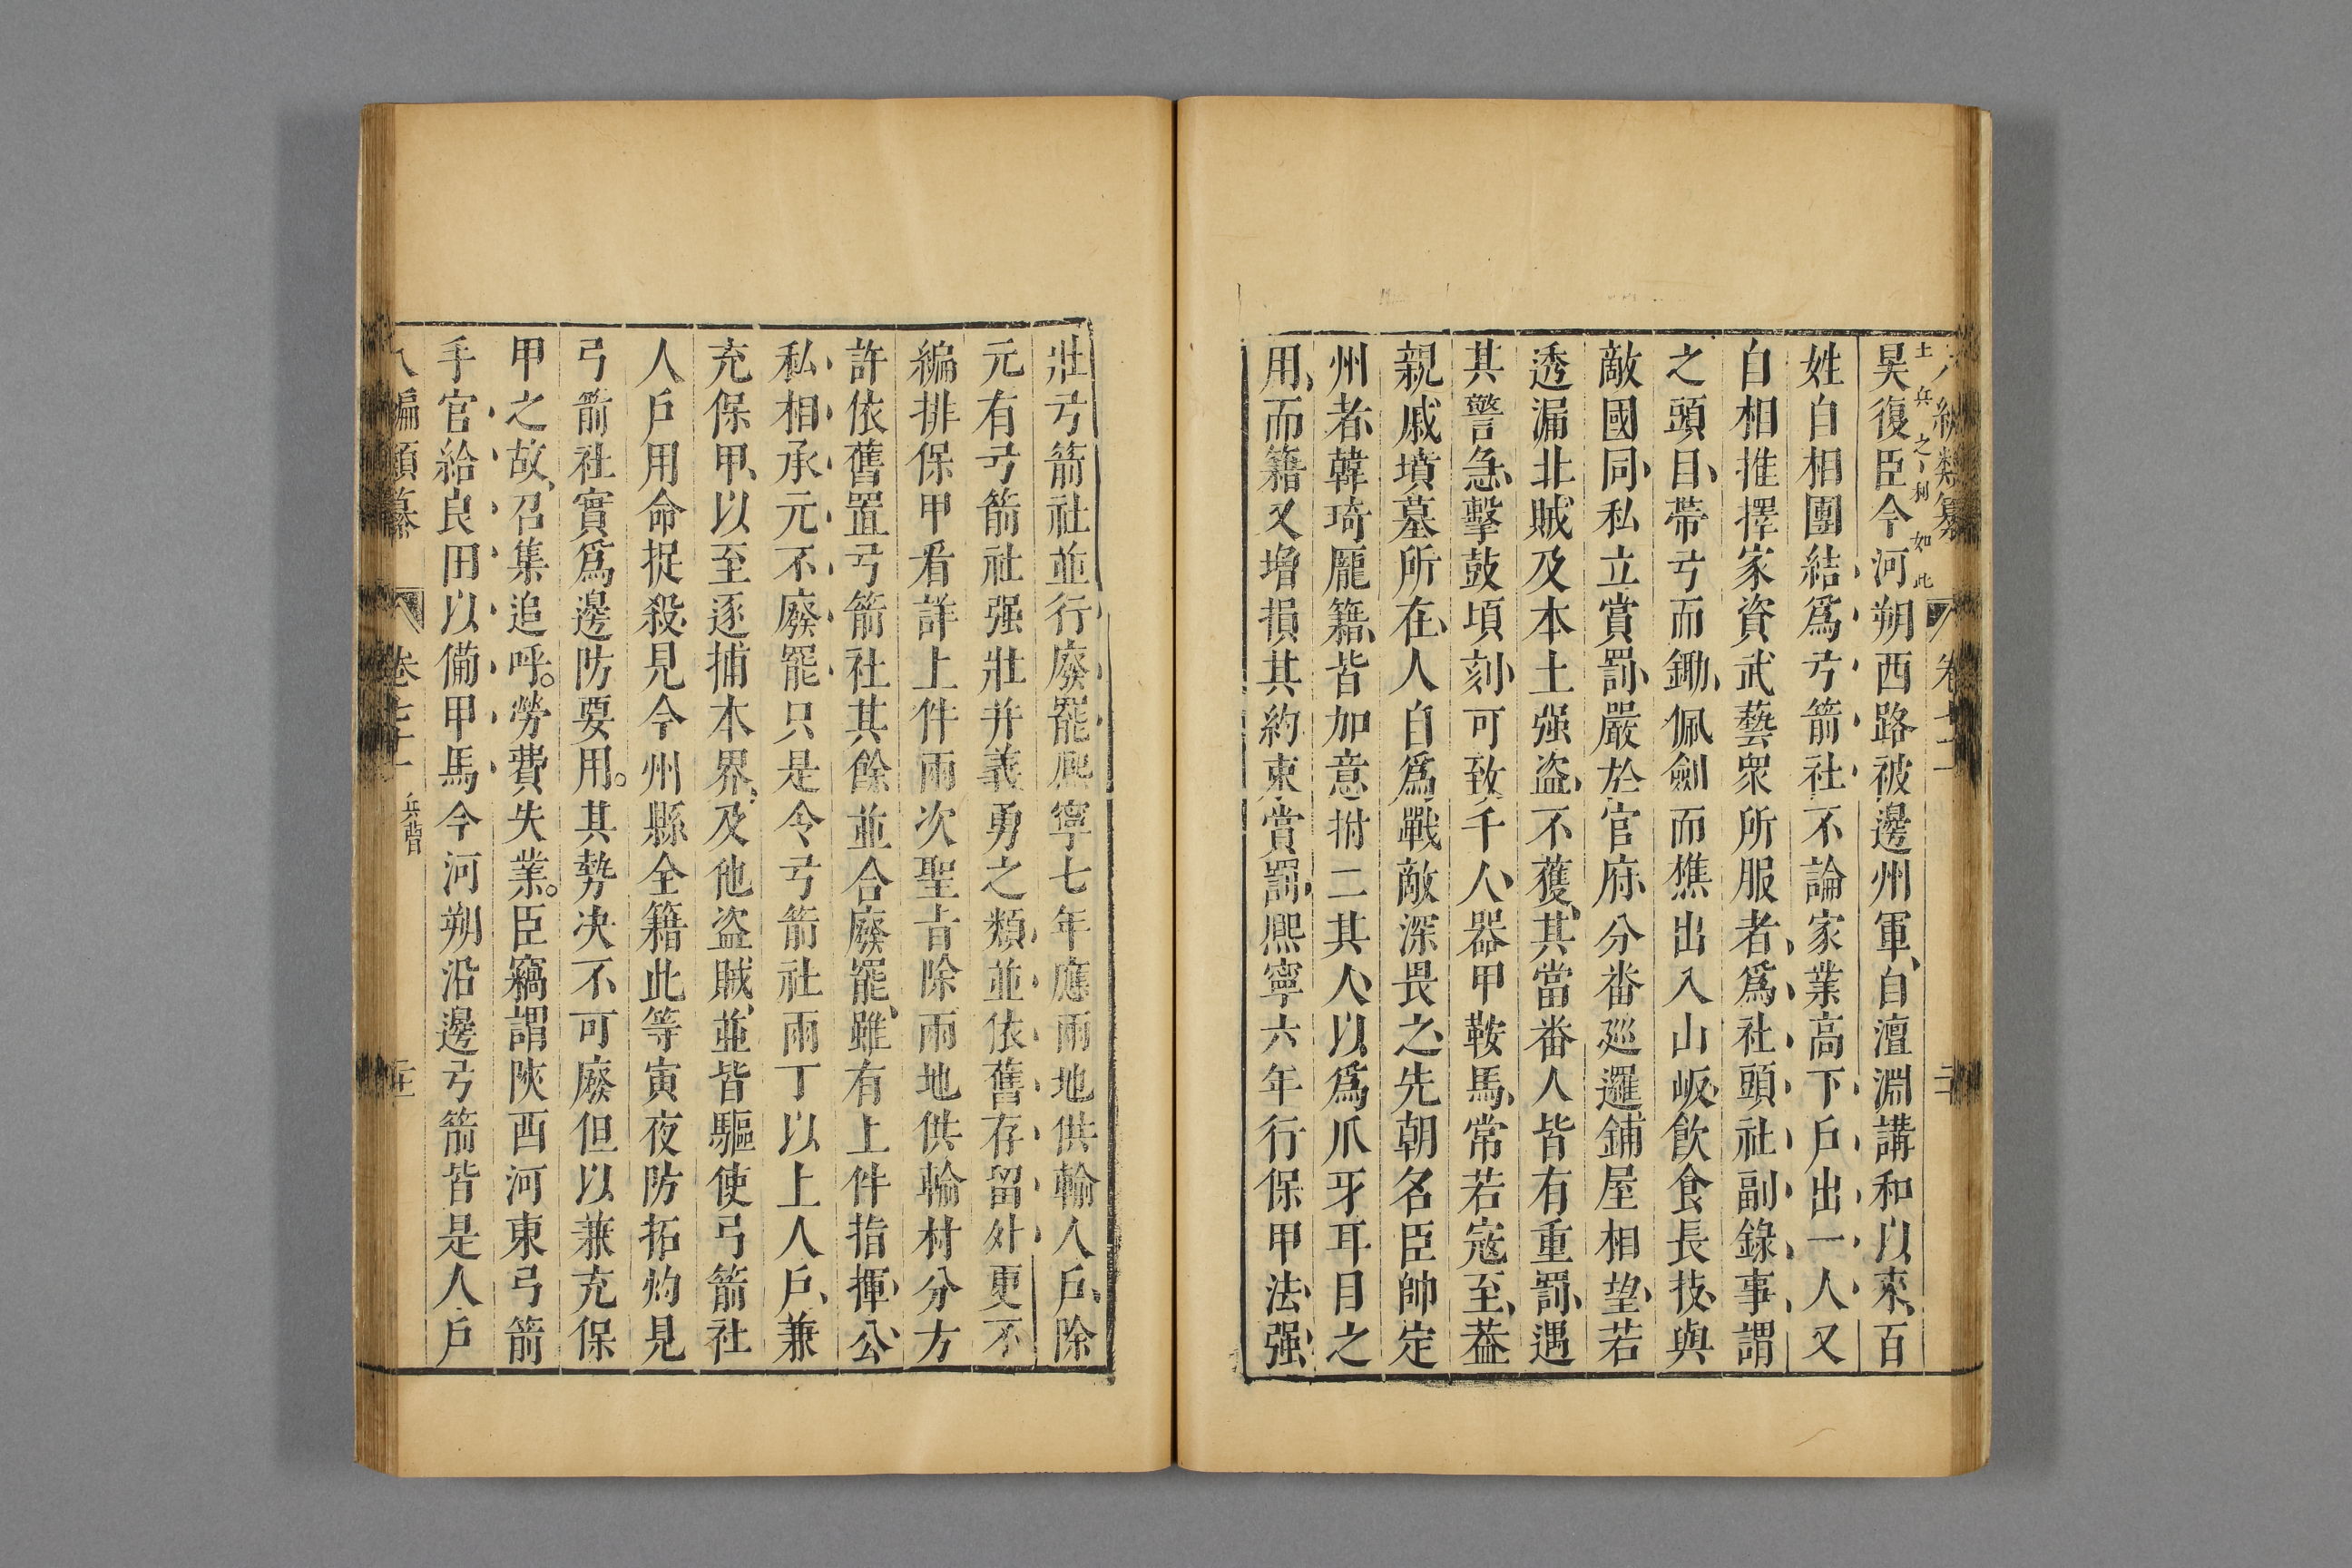 八編類纂 卷七十二
土兵之利如此
昊復臣今河朔西路被邊州軍自澶淵講和以來百
姓自相團結爲弓箭社不論家業高下戶出一人又
自相推擇家資武藝衆所服者爲社頭社副錄事謂
之頭目帶弓而鋤佩劍而樵出入山坂飲食長技與
敵國同私立賞罰嚴於官府分畨廵邏鋪屋相望若
透漏北賊及本土强盜不獲其當畨人皆有重罰遇
其警急擊鼓頃刻可致千人器甲鞍馬常若寇至葢
親戚墳墓所在人自爲戰敵深畏之先朝名臣帥定
州者韓琦龐籍皆加意拊二其人以爲爪牙耳目之
用而籍又增損其約束賞罰熙寧六年行保甲法强
壯弓箭社並行廢罷熙寧七年應兩地供輸人戶除
元有弓箭社强壯幷義勇之類並依舊存留外更不
編排保甲看詳上件兩次聖旨除兩地供輸村分方
許依舊置弓箭社其餘並合廢罷雖有上件指揮公
私相承元不廢罷只是令弓箭社兩丁以上人戶兼
充保甲以至逐捕本界及他盜賊並皆驅使弓箭社
人戶用命捉殺見今州縣全籍此等寅夜防拓灼見
弓箭社實爲邊防要用其勢決不可廢但以兼充保
甲之故召集追呼勞費失業臣竊謂陝西河東弓箭
手官給良田以備甲馬今河朔沿邊弓箭皆是人戶
八編類纂 卷七十二 兵曹